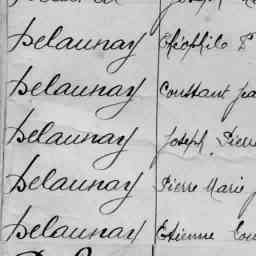 Delaunay Théophile P
Delaunay Constant Jea
Delaunay Joseph Pierre
Delaunay Pierre Marie
Delaunay Etienne